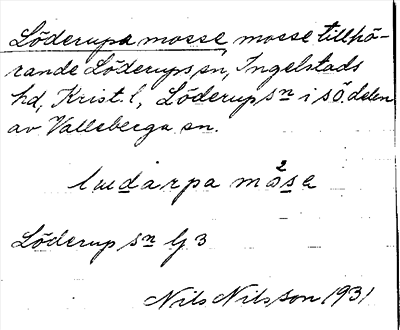 Löderupa mosse, mosse tillhö-
rande Löderups sn, Ingelstads
hd, Krist. l, Löderup sn i sö. delen
av Valleberga sn.
mo2se
Löderup sn G 3
Nils Nilsson 1931